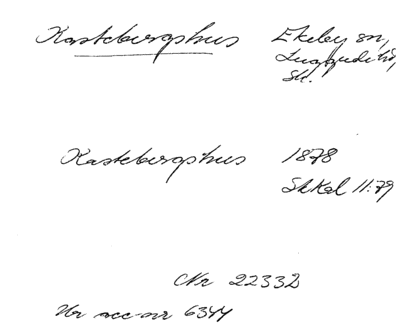 Kastebergshus Ekeby sn,
Luggude hd,
Sk.
Kastebergshus 1878
SkKal 11:79
Nr 2233D
Ur acc-nr 6344